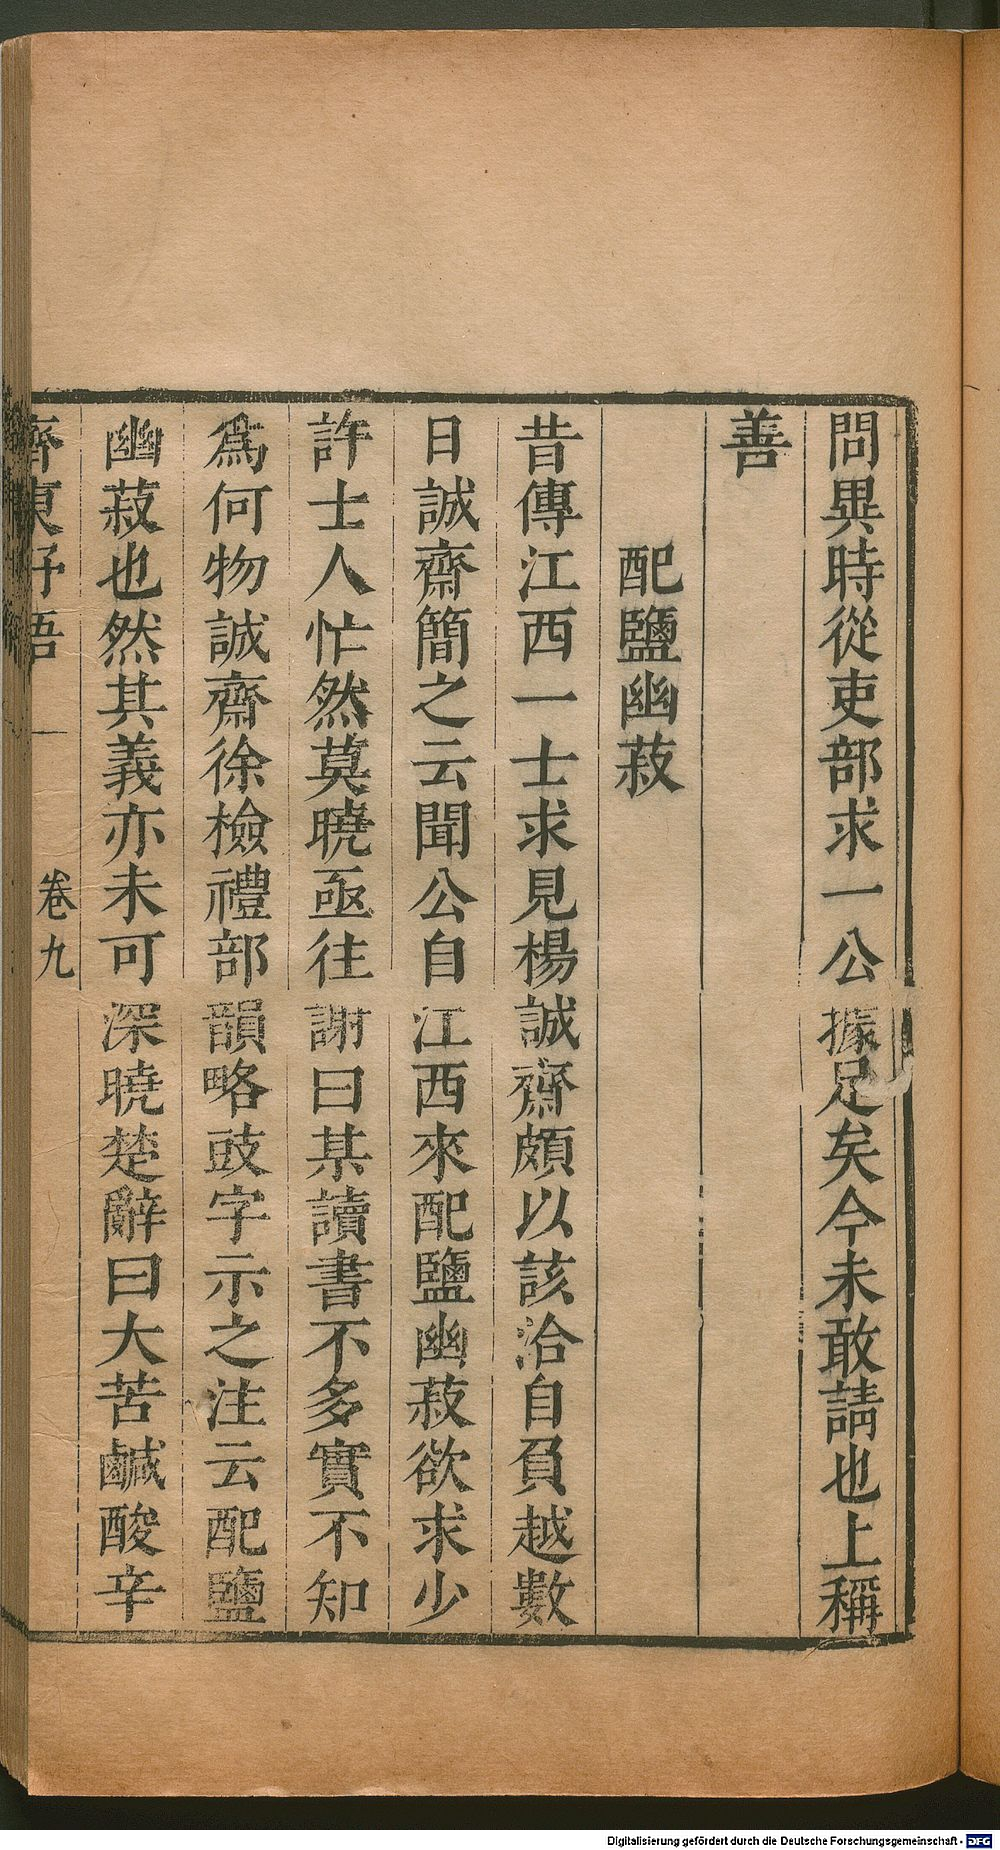 問異時從吏部求一公據足矣今未敢請也上稱
善
配鹽幽菽
昔傳江西一士求見楊誠齋頗以該洽自負越數
日誠齋簡之云聞公自江西來配鹽幽菽欲求少
許士人忙然莫曉亟往謝曰某讀書不多實不知
爲何物誠齋徐檢禮部韻略豉字示之注云配鹽
幽菽也然其義亦未可深曉楚辭曰大苦鹹酸辛
齊東野語 卷九
Digitalisierung gefördert durch die Deutsche Forschungsgemeinschaft - DFG